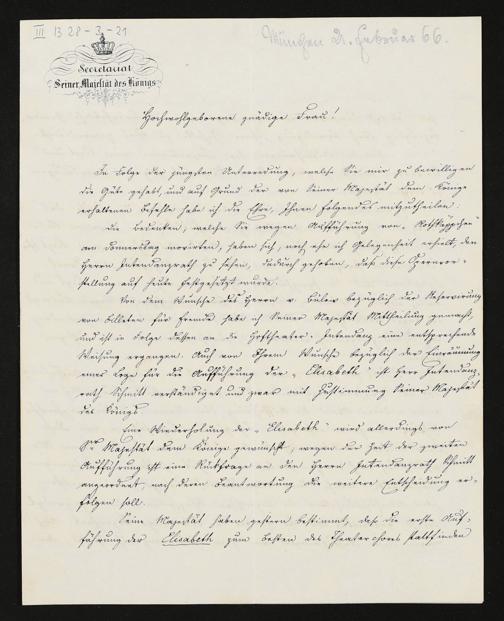 III B 28 - 3 - 21
München 21. Februar 66.
Secretariat
Seiner Majestät des Königs
Hochwohlgeborene gnädige Frau!
In Folge der jüngsten Unterredung, welche Sie mir zu bewilligen
die Güte gehabt, und auf Grund der von Seiner Majestät dem Könige
erhaltenen Befehle habe ich die Ehre, Ihnen Folgendes mitzutheilen:
Die Bedenken, welche Sie wegen Aufführung von „Rothkäppchen"
am Donnerstag, haben sich, noch ehe ich Gelegenheit erhielt, den
Herrn Intendanzrath zu sehen, dadurch gehoben, daß diese Opernvor-
stellung auf heute festgesetzt wurde.
Von dem Wunsche des Herrn v. Bülow bezüglich der Reservirung
von Billeten für Fremde habe ich Seiner Majestät Mittheilung gemacht,
und ist in Folge dessen an die Hoftheater-Intendanz eine entsprechende
Weisung ergangen. Auch von Ihrem Wunsche bezüglich der Einräumung
einer Loge für die Aufführung der „Elisabeth" ist Herr Intendanz-
rath Schmitt verständiget und zwar mit Zustimmung Seiner Majestät
des Königs.
Eine Wiederholung der „Elisabeth" wird allerdings von
Sr. Majestät dem Könige gewünscht, wegen der Zeit der zweiten
Aufführung ist eine Rückfrage an den Herrn Intendanzrath Schmitt
angeordnet, nach deren Beantwortung die weitere Entscheidung er-
folgen soll.
Seine Majestät haben gestern bestimmt, daß die erste Auf-
führung der Elisabeth zum Besten des Theaterchores stattfinden